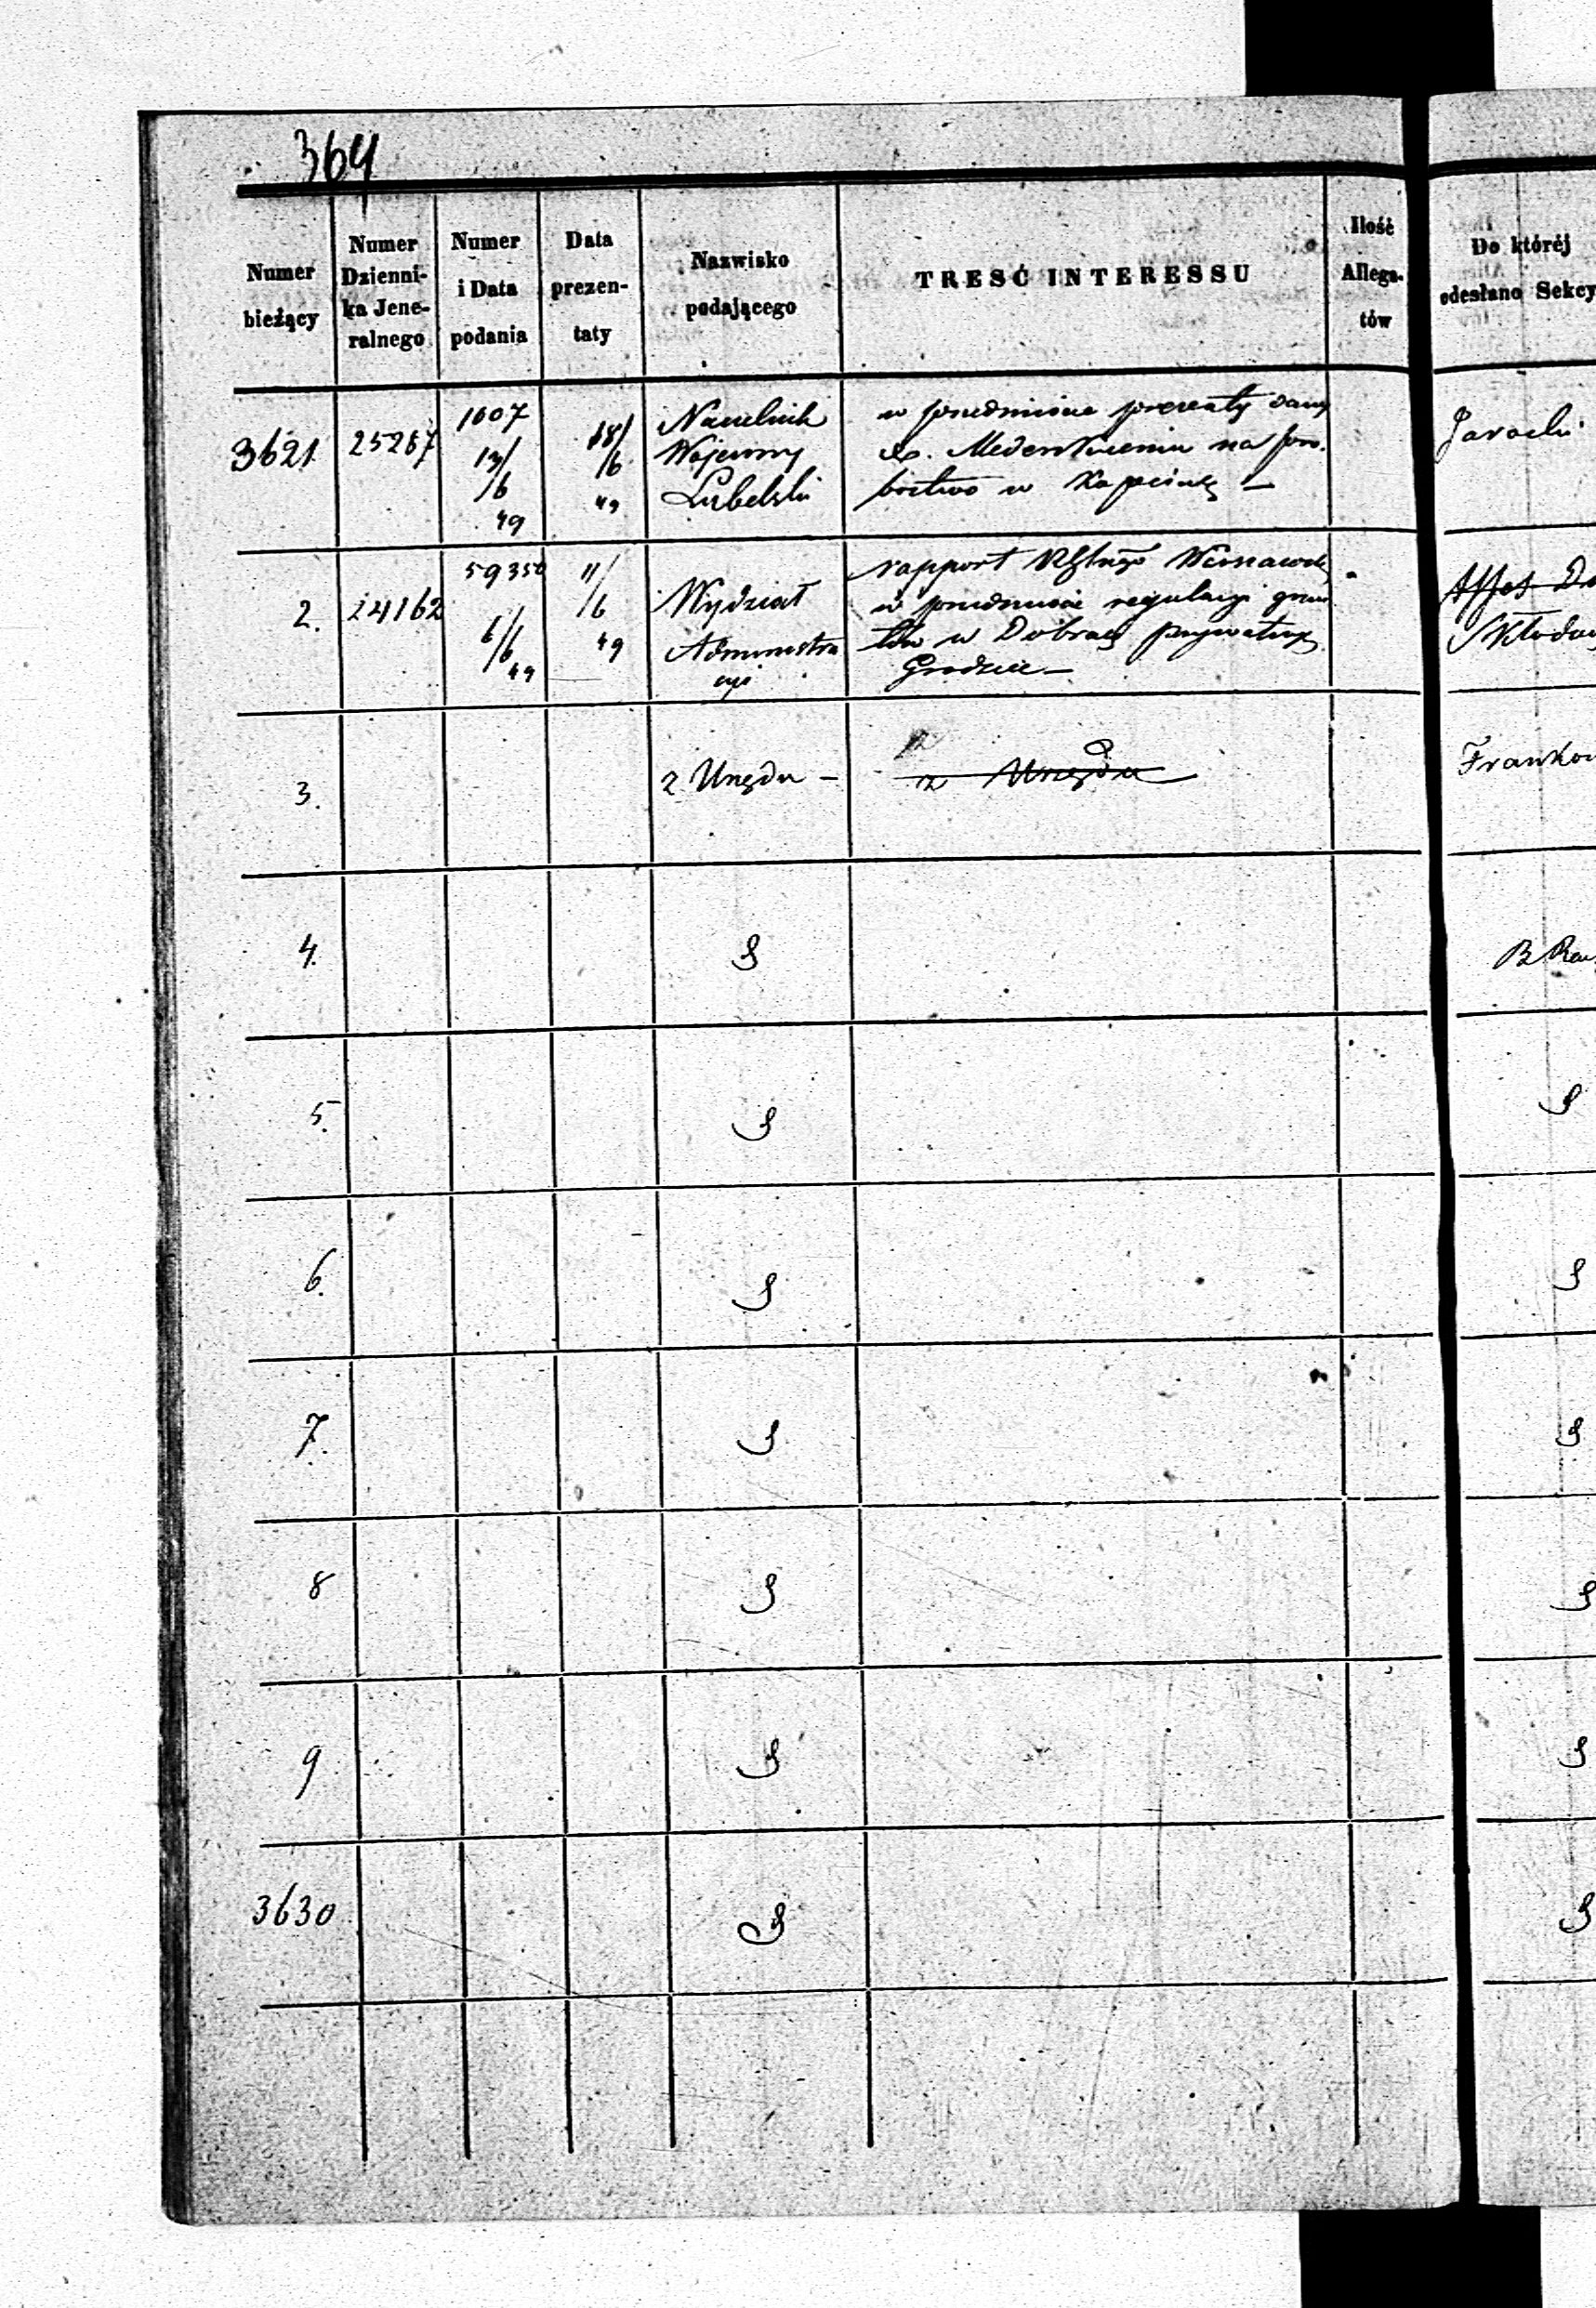 364
Numer bieżący
Numer Dzienni-ka Jene-ralnego
Numer i Data podania
Data prezen-taty
Nazwisko podającego
TRESĆ INTERESSU
Ilość Allega-tów
Do któréj odesłano Sekcy
3621
25267
1607
13/6 49
18/6 49
Naczelnik
Wojenny
Lubelski
w przedmiocie prezenty dany
na pro-
bostwo w
Jarocki
2.
24162
59350
6/6 49
11/6 49
Wydział
Administra
cyi
rapport
w przedmiocie regulacyi grun
tów w Dobrach prywatnych
Grodziec
3.
z Urzędu
z Urzędu
Frankow
4.
B Rau
5.
6.
7.
8
9
3630